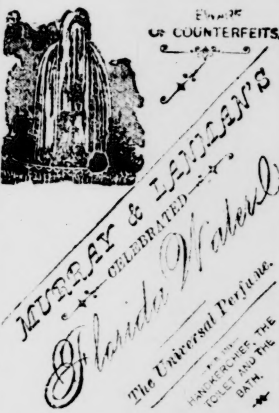 BEWARE
OF COUNTERFEITS.
MURRAY & LANMAN'S
CELEBRATED
Florida Water
The Universal Perfume.
HANDKERCHIEF, THE
TOILET AND THE
BATH.